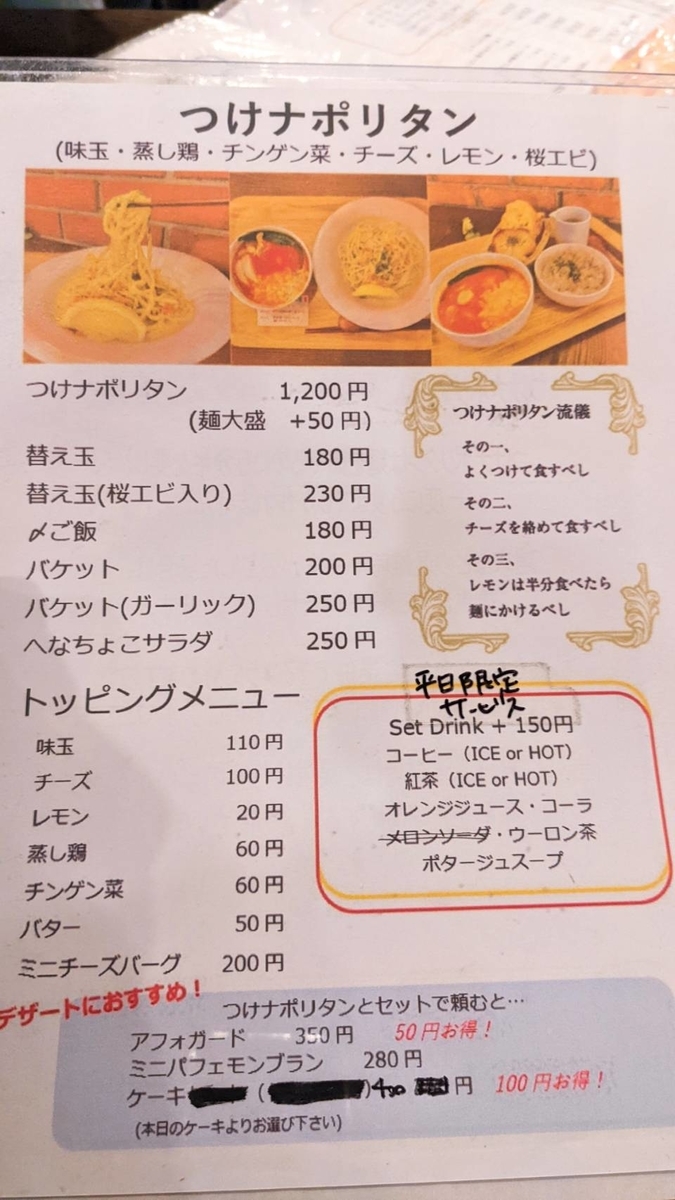 つけナポリタン
(味玉・蒸し鶏・チンゲン菜・チーズ・レモン・桜エビ)
つけナポリタン 1,200円
(麺大盛 +50円)
替え玉 180円
替え玉(桜エビ入り) 230円
〆ご飯 180円
バケット 200円
バケット(ガーリック) 250円
へなちょこサラダ 250円
つけナポリタン流儀
その一、
よくつけて食すべし
その二、
チーズを絡めて食すべし
その三、
レモンは半分食べたら
麺にかけるべし
トッピングメニュー
味玉 110円
チーズ 100円
レモン 20円
蒸し鶏 60円
チンゲン菜 60円
バター 50円
ミニチーズバーグ 200円
平日限定
サービス
Set Drink + 150円
コーヒー（ICE or HOT）
紅茶（ICE or HOT）
オレンジジュース・コーラ
メロンソーダ・ウーロン茶
ポタージュスープ
デザートにおすすめ！
つけナポリタンとセットで頼むと…
アフォガード 350円 50円お得！
ミニパフェモンブラン 280円
ケーキ ( )400 円 100円お得！
(本日のケーキよりお選び下さい)